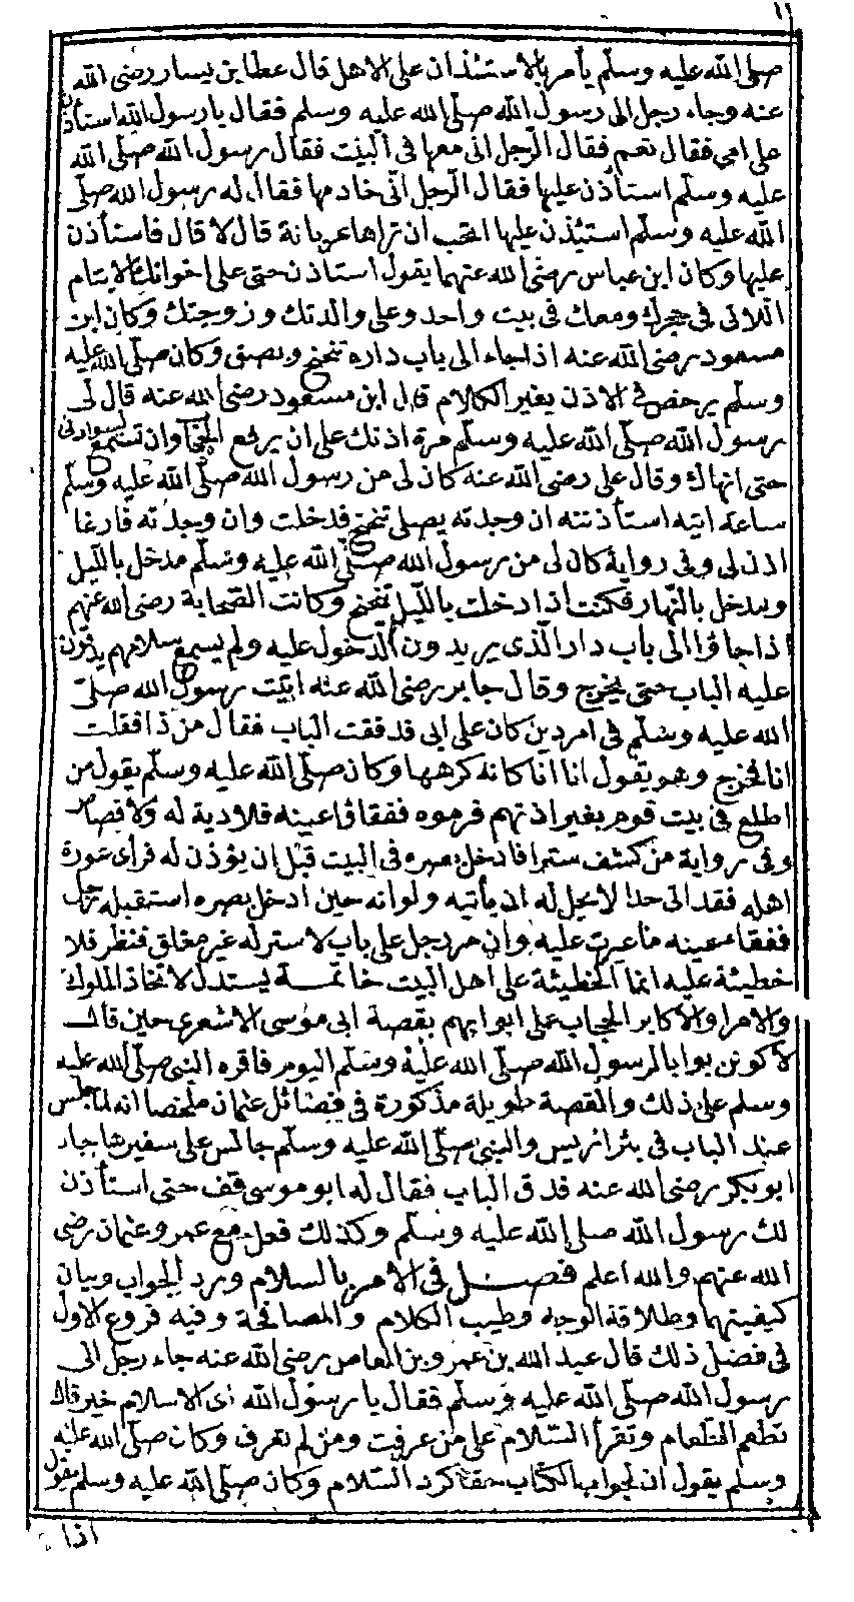 ١١
صلى الله عليه وسلم يأمر بالاستئذان على الاهل قال عطا بن يسار رضى الله
عنه وجاء رجل الى رسول الله صلى الله عليه وسلم فقال يا رسول الله استأذن
على امى فقال نعم فقال الرجل انى معها فى البيت فقال رسول الله صلى الله
عليه وسلم استأذن عليها فقال الرجل انى خادمها فقال له رسول الله صلى
الله عليه وسلم استيئذن عليها اتحب ان تراها عريانة قال لا قال فاستأذن
عليها وكان ابن عباس رضى الله عنهما يقول استاذن حتى على اخواتك الايتام
اللاتى فى حجرك ومعك فى بيت واحد وعلى والدتك وزوجتك وكان ابن
مسعود رضى الله عنه اذا جاء الى باب داره تنحنح وبصق وكان صلى الله عليه
وسلم يرخص فى الاذن بغير الكلام قال ابن مسعود رضى الله عنه قال لى
رسول الله صلى الله عليه وسلم مرة اذنك على ان يرفع الحجاب وان تستمع لسوادى
حتى انهاك وقال على رضى الله عنه كان لى من رسول الله صلى الله عليه وسلم
ساعة اتيه استأذنته ان وجدته يصلى تنحنح فدخلت وان وجدته فارغا
اذن لى وفى رواية كان لى من رسول الله صلى الله عليه وسلم مدخل بالليل
ومدخل بالنهار فكنت اذا دخلت بالليل تنحنح وكانت الصحابة رضى الله عنهم
اذا جاؤا الى باب دار الذى يريدون الدخول عليه ولم يسمع سلامهم يدقون
عليه الباب حتى يخرج وقال جابر رضى الله عنه اتيت رسول الله صلى
الله عليه وسلم فى امر دين كان على ابى فدققت الباب فقال من ذا فقلت
انا فخرج وهو يقول انا انا كانه كرهها وكان صلى الله عليه وسلم يقول من
اطلع فى بيت قوم بغير اذنهم فرموه ففقاؤا عينه فلا دية له ولا قصاص
وفى رواية من كشف سترا فادخل بصره فى البيت قبل ان يؤذن له فرأى عورة
اهله فقد اتى حدا لا يحل له ان يأتيه ولو انه حين ادخل بصره استقبله رجل
ففقاء عينه ما عيرت عليه وان مر رجل على باب لا ستر له غير مغلق فنظر فلا
خطيئة عليه انما الخطيئة على اهل البيت خاتمة يستدل لاتخاذ الملوك
والامرا والاكابر الحجاب على ابوابهم بقصة ابى موسى الاشعرى حين قال
لأكونن بوابا لرسول الله صلى الله عليه وسلم اليوم فاقره النبى صلى الله عليه
وسلم على ذلك والقصة طويلة مذكورة فى فضائل عثمان ملخصا انه لما جلس
عند الباب فى بئر اريس والنبى صلى الله عليه وسلم جالس على سفيرها جاء
ابو بكر رضى الله عنه فدق الباب فقال له ابو موسى قف حتى استأذن
لك رسول الله صلى الله عليه وسلم وكذلك فعل مع عمر وعثمان رضى
الله عنهم والله اعلم فصل فى الامر بالسلام ورد الجواب وبيان
كيفيتهما وطلاقة الوجه وطيب الكلام والمصافحة وفيه فروع الاول
فى فضل ذلك قال عبد الله بن عمرو بن العاص رضى الله عنه جاء رجل الى
رسول الله صلى الله عليه وسلم فقال يا رسول الله اى الاسلام خير قال
تطعم الطعام وتقرأ السلام على من عرفت ومن لم تعرف وكان صلى الله عليه
وسلم يقول ان لجواب الكتاب حقا كرد السلام وكان صلى الله عليه وسلم يقول
اذا